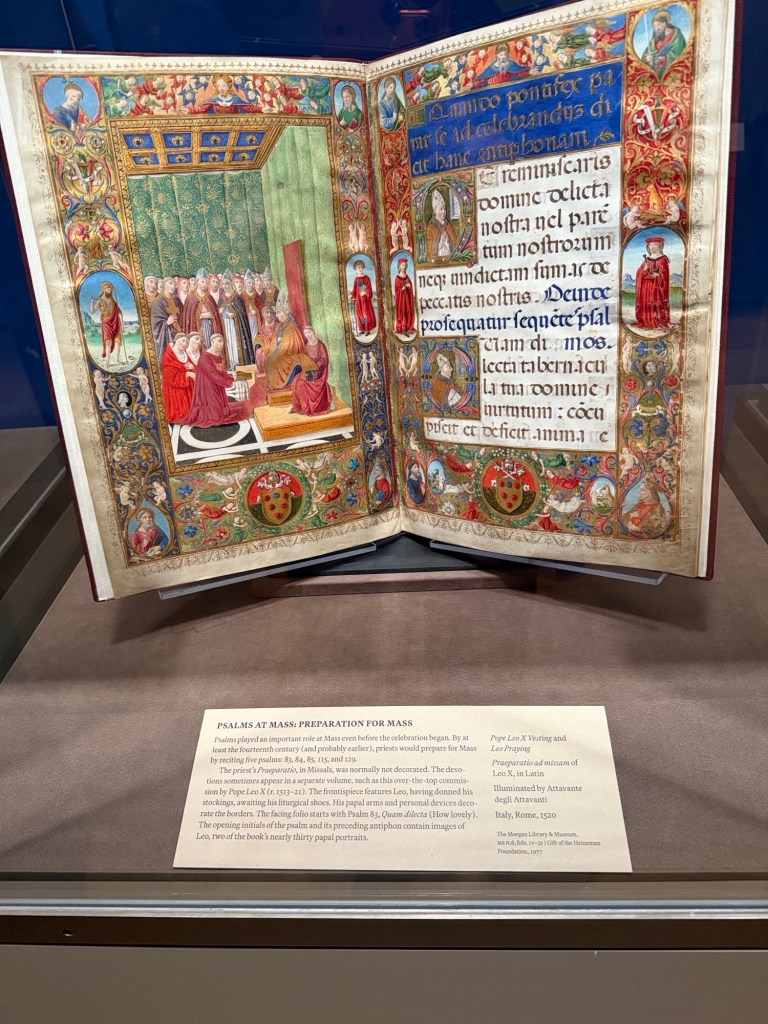 Quando pontifex pa
rat se ad celebranduz di
cit hanc antiphonam
E reminiscaris
domine delicta
nostra uel parē
tum nostrorum
neq; uindictam sumas de
peccatis nostris. Deinde
prosequatur sequēte psal
di mos.
lecta tabernacu
la tua domine
uirtutum: cōcu
piscit et deficit anima
PSALMS AT MASS: PREPARATION FOR MASS
Psalms played an important role at Mass even before the celebration began. By at
least the fourteenth century (and probably earlier), priests would prepare for Mass
by reciting five psalms: 83, 84, 85, 115, and 129.
The priest's Praeparatio, in Missals, was normally not decorated. The devo-
tions sometimes appear in a separate volume, such as this over-the-top commis-
sion by Pope Leo X (r. 1513–21). The frontispiece features Leo, having donned his
stockings, awaiting his liturgical shoes. His papal arms and personal devices deco-
rate the borders. The facing folio starts with Psalm 83, Quam dilecta (How lovely).
The opening initials of the psalm and its preceding antiphon contain images of
Leo, two of the book's nearly thirty papal portraits.
Pope Leo X Vesting and
Leo Praying
Praeparatio ad missam of
Leo X, in Latin
Illuminated by Attavante
degli Attavanti
Italy, Rome, 1520
The Morgan Library & Museum,
MS H.6, fols. 1v–2r | Gift of the Heineman
Foundation, 1977